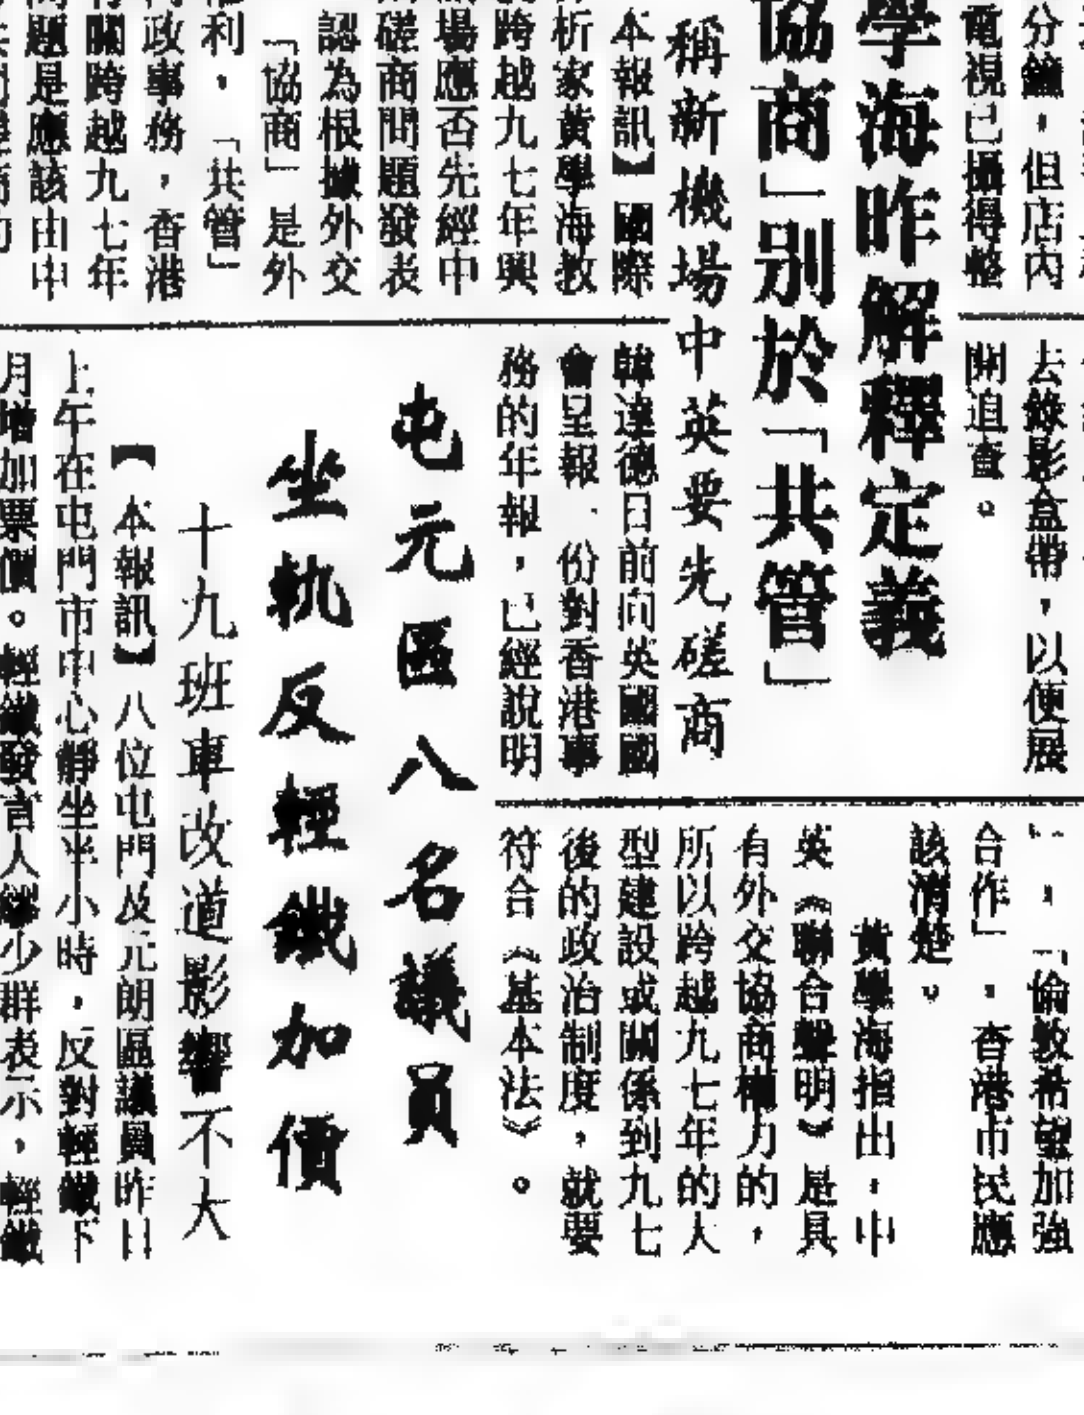 分鐘，但店內
電視已攝得整
去錄影盒帶，以便展
開追查。
學海昨解釋定義
協商」別於「共管」
稱新機場中英要先磋商
本報訊】國際
析家黃學海教
跨越九七年興
場應否先經中
磋商問題發表
認為根據外交
「協商」是外
利，「共管」
政事務，香港
關跨越九七年
題是應該由中
韓達德日前向英國國
會呈報一份對香港事
務的年報，已經說明
，「倫敦希望加強
合作」，香港市民應
該清楚。
黃學海指出，中
英《聯合聲明》是具
有外交協商權力的，
所以跨越九七年的大
型建設或關係到九七
後的政治制度，就要
符合《基本法》。
屯元區八名議員
坐軌反輕鐵加價
十九班車改道影響不大
【本報訊】八位屯門及元朗區議員昨日
上午在屯門市中心靜坐半小時，反對輕鐵下
月增加票價。輕鐵發言人繆少群表示，輕鐵